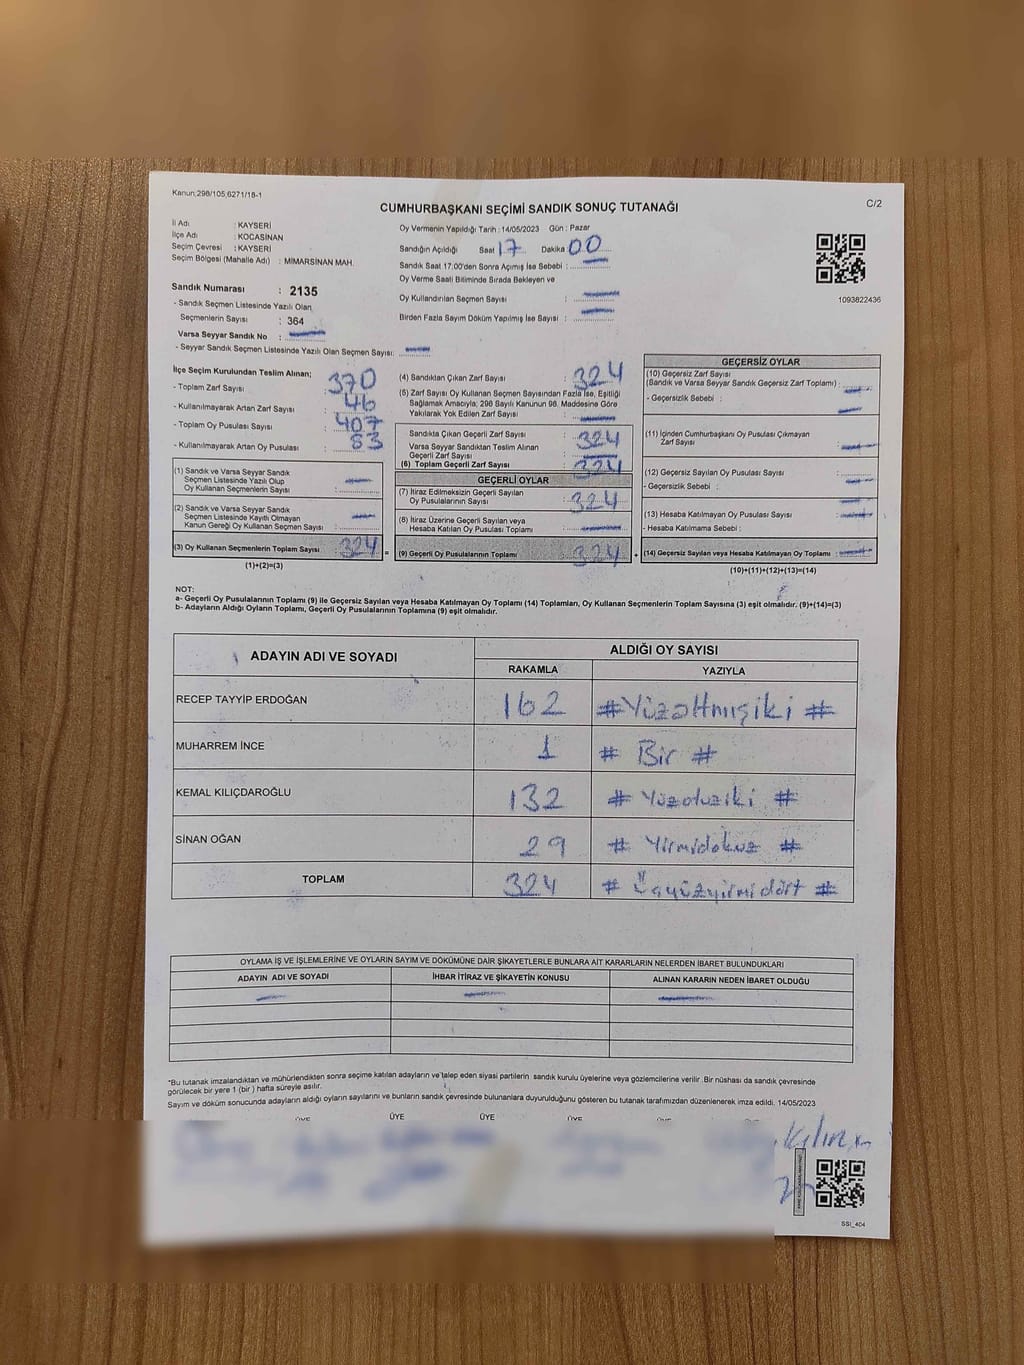 Kanun;298/105,6271/18-1
C/2
CUMHURBAŞKANI SEÇİMİ SANDIK SONUÇ TUTANAĞI
İl Adı : KAYSERİ
İlçe Adı : KOCASİNAN
Seçim Çevresi : KAYSERİ
Seçim Bölgesi (Mahalle Adı) : MİMARSİNAN MAH.
Sandık Numarası : 2135
- Sandık Seçmen Listesinde Yazılı Olan
Seçmenlerin Sayısı : 364
Varsa Seyyar Sandık No :
- Seyyar Sandık Seçmen Listesinde Yazılı Olan Seçmen Sayısı:
Oy Vermenin Yapıldığı Tarih : 14/05/2023 Gün : Pazar
Sandığın Açıldığı Saat 17 Dakika 00
Sandık Saat 17:00'den Sonra Açımış İse Sebebi :
Oy Verme Saati Bitiminde Sırada Bekleyen ve
Oy Kullandırılan Seçmen Sayısı :
Birden Fazla Sayım Döküm Yapılmış İse Sayısı :
1093822436
İlçe Seçim Kurulundan Teslim Alınan;
- Toplam Zarf Sayısı : 370
- Kullanılmayarak Artan Zarf Sayısı : 46
- Toplam Oy Pusulası Sayısı : 407
- Kullanılmayarak Artan Oy Pusulası : 83
(1) Sandık ve Varsa Seyyar Sandık
Seçmen Listesinde Yazılı Olup
Oy Kullanan Seçmenlerin Sayısı :
(2) Sandık ve Varsa Seyyar Sandık
Seçmen Listesinde Kayıtlı Olmayan
Kanun Gereği Oy Kullanan Seçmen Sayısı :
(3) Oy Kullanan Seçmenlerin Toplam Sayısı : 324 =
(1)+(2)=(3)
(4) Sandıktan Çıkan Zarf Sayısı : 324
(5) Zarf Sayısı Oy Kullanan Seçmen Sayısından Fazla İse, Eşitliği
Sağlamak Amacıyla; 298 Sayılı Kanunun 98. Maddesine Göre
Yakılarak Yok Edilen Zarf Sayısı :
Sandıkta Çıkan Geçerli Zarf Sayısı : 324
Varsa Seyyar Sandıktan Teslim Alınan
Geçerli Zarf Sayısı :
(6) Toplam Geçerli Zarf Sayısı : 324
GEÇERLİ OYLAR
(7) İtiraz Edilmeksizin Geçerli Sayılan
Oy Pusulalarının Sayısı : 324
(8) İtiraz Üzerine Geçerli Sayılan veya
Hesaba Katılan Oy Pusulası Toplamı :
(9) Geçerli Oy Pusulalarının Toplamı : 324 +
GEÇERSİZ OYLAR
(10) Geçersiz Zarf Sayısı
(Sandık ve Varsa Seyyar Sandık Geçersiz Zarf Toplamı) :
- Geçersizlik Sebebi :
(11) İçinden Cumhurbaşkanı Oy Pusulası Çıkmayan
Zarf Sayısı :
(12) Geçersiz Sayılan Oy Pusulası Sayısı :
- Geçersizlik Sebebi :
(13) Hesaba Katılmayan Oy Pusulası Sayısı :
- Hesaba Katılmama Sebebi :
(14) Geçersiz Sayılan veya Hesaba Katılmayan Oy Toplamı :
(10)+(11)+(12)+(13)=(14)
NOT:
a- Geçerli Oy Pusulalarının Toplamı (9) ile Geçersiz Sayılan veya Hesaba Katılmayan Oy Toplamı (14) Toplamları, Oy Kullanan Seçmenlerin Toplam Sayısına (3) eşit olmalıdır. (9)+(14)=(3)
b- Adayların Aldığı Oyların Toplamı, Geçerli Oy Pusulalarının Toplamına (9) eşit olmalıdır.
ADAYIN ADI VE SOYADI
ALDIĞI OY SAYISI
RAKAMLA YAZIYLA
RECEP TAYYİP ERDOĞAN 162 # Yüzaltmışiki #
MUHARREM İNCE 1 # Bir #
KEMAL KILIÇDAROĞLU 132 # Yüzotuziki #
SİNAN OĞAN 29 # Yirmidokuz #
TOPLAM 324 # Üçyüzyirmidört #
OYLAMA İŞ VE İŞLEMLERİNE VE OYLARIN SAYIM VE DÖKÜMÜNE DAİR ŞİKAYETLERLE BUNLARA AİT KARARLARIN NELERDEN İBARET BULUNDUKLARI
ADAYIN ADI VE SOYADI İHBAR İTİRAZ VE ŞİKAYETİN KONUSU ALINAN KARARIN NEDEN İBARET OLDUĞU
*Bu tutanak imzalandıktan ve mühürlendikten sonra seçime katılan adayların ve talep eden siyasi partilerin sandık kurulu üyelerine veya gözlemcilerine verilir. Bir nüshası da sandık çevresinde
görülecek bir yere 1 (bir ) hafta süreyle asılır.
Sayım ve döküm sonucunda adayların aldığı oyların sayılarını ve bunların sandık çevresinde bulunanlara duyurulduğunu gösteren bu tutanak tarafımızdan düzenlenerek imza edildi. 14/05/2023
ÜYE ÜYE ÜYE ÜYE ÜYE
SSI_404